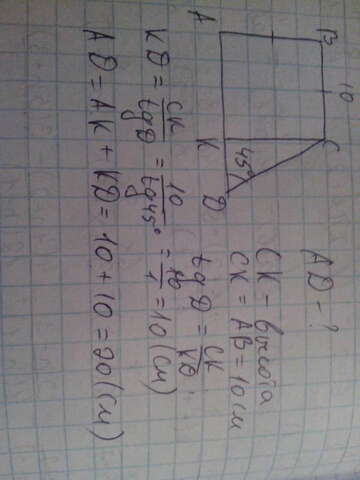 A
B
10
C
K
45°
D
AD - ?
CK - высота
CK = AB = 10 см
tg D = CK / KD
KD = CK / tg D = 10 / tg 45° = 10 / 1 = 10 (см)
AD = AK + KD = 10 + 10 = 20 (см)